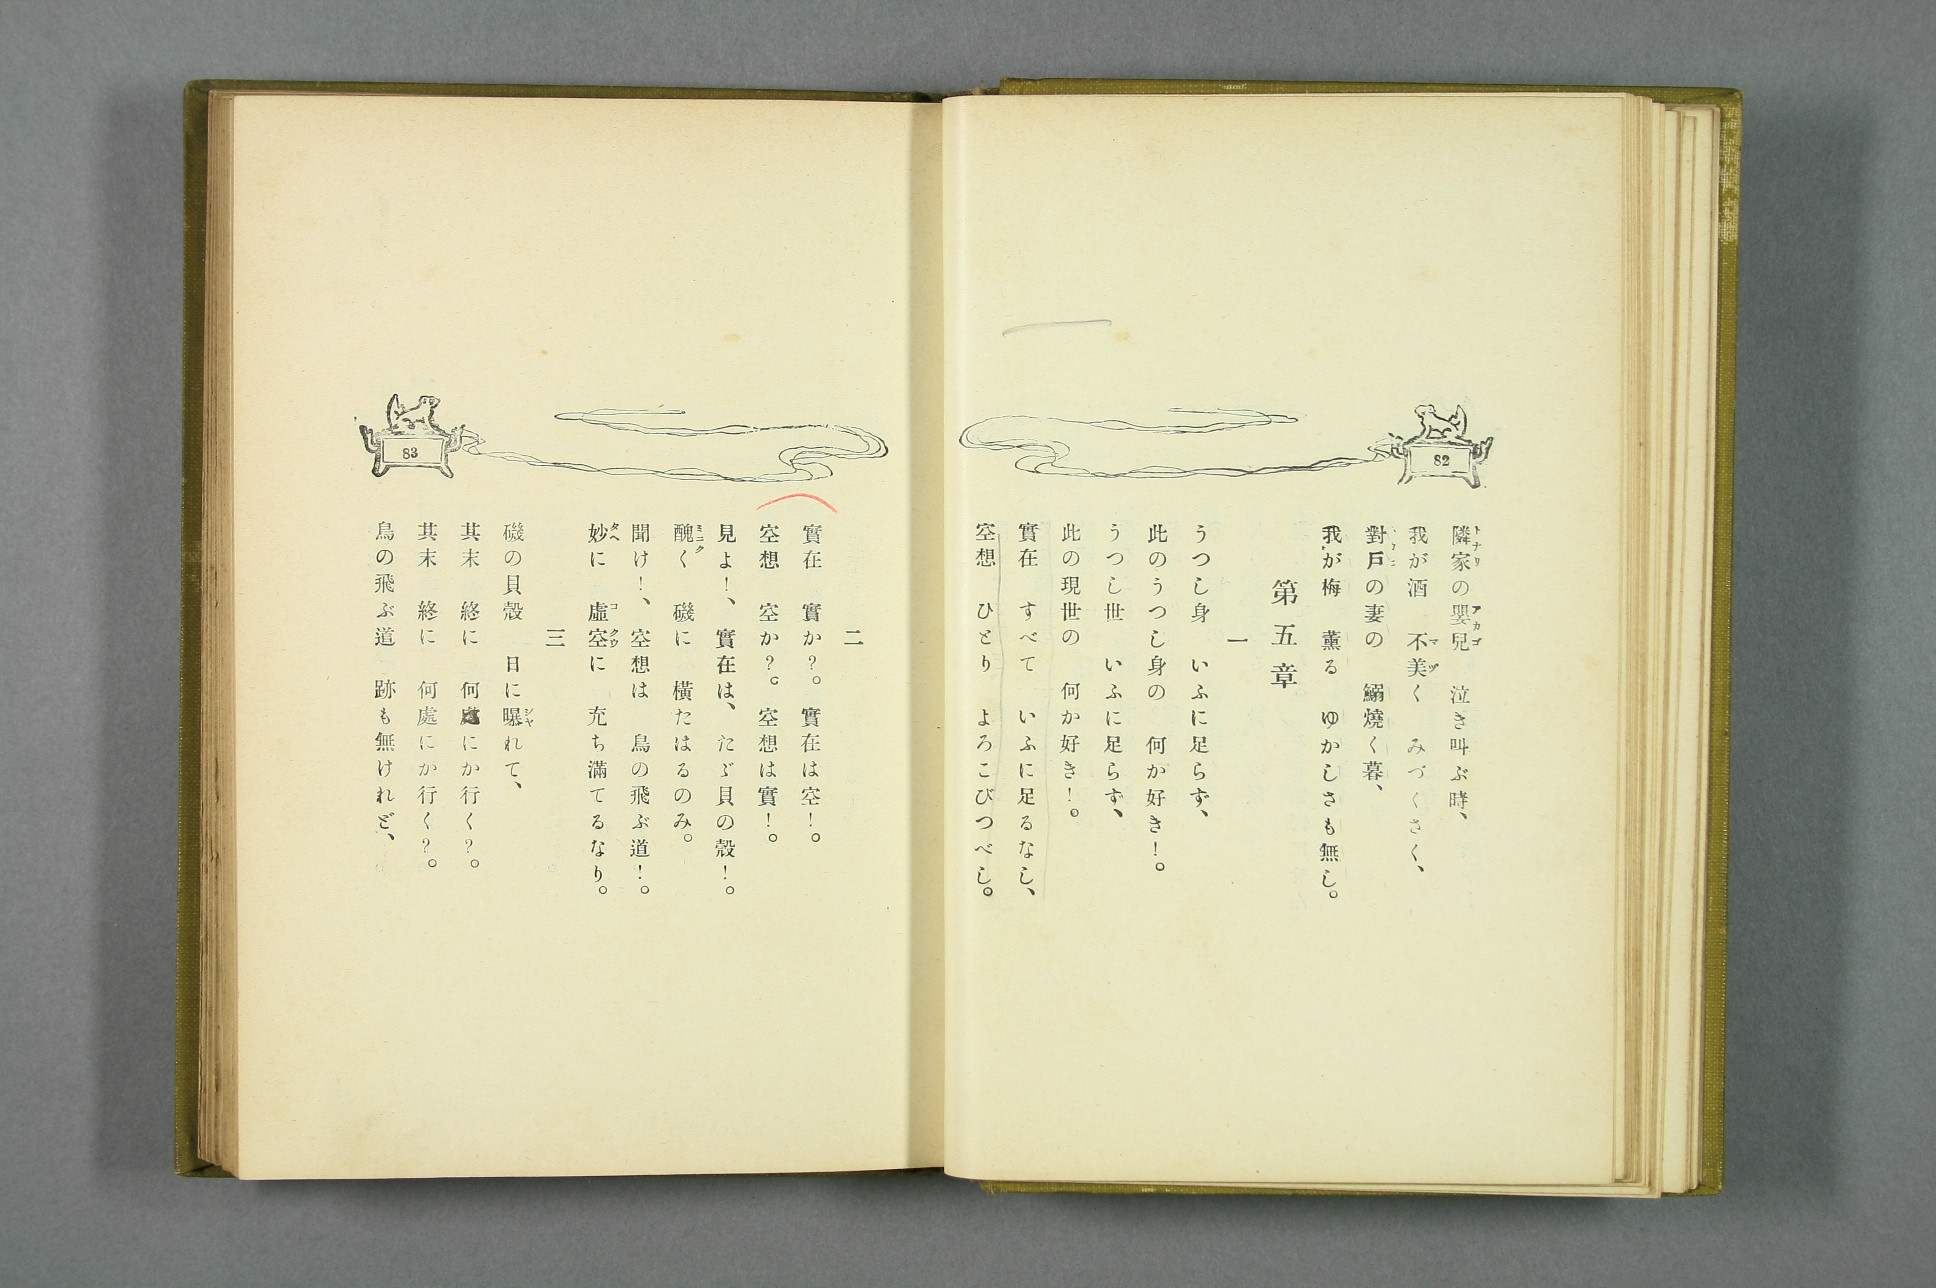 82
隣家の嬰兒　泣き叫ぶ時、
我が酒　不美く　みづくさく、
對戸の妻の　鰯燒く暮、
我が梅　薫る　ゆかしさも無し。
第五章
一
うつし身　いふに足らず、
此のうつし身の　何か好き！。
うつし世　いふに足らず、
此の現世の　何か好き！。
實在　すべて　いふに足るなし、
空想　ひとり　よろこびつべし。
83
二
實在　實か？。實在は空！。
空想　空か？。空想は實！。
見よ！、實在は、たゞ貝の殼！。
醜く　磯に　横たはるのみ。
聞け！、空想は　鳥の飛ぶ道！。
妙に　虚空に　充ち滿てるなり。
三
磯の貝殼　日に曝れて、
其末　終に　何處にか行く？。
其末　終に　何處にか行く？。
鳥の飛ぶ道　跡も無けれど、